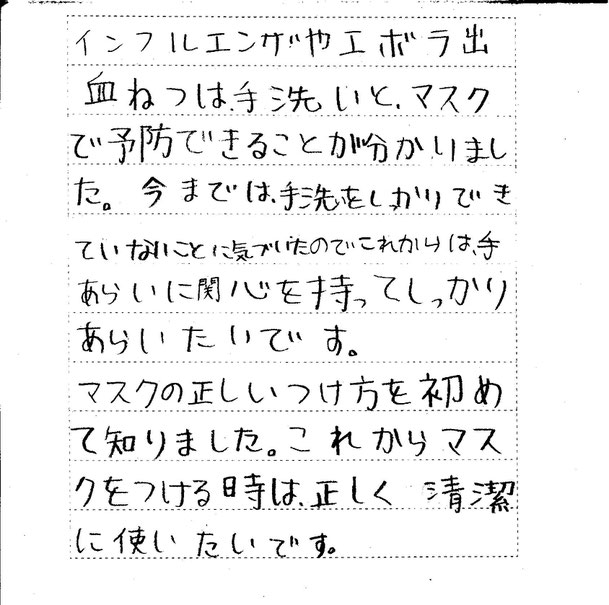 インフルエンザやエボラ出
血ねつは、手洗いと、マスク
で予防できることが分かりまし
た。今までは、手洗をしっかりでき
ていないことに気づいたのでこれからは、手
あらいに関心を持ってしっかり
あらいたいです。
マスクの正しいつけ方を初め
て知りました。これからマス
クをつける時は、正しく清潔
に使いたいです。